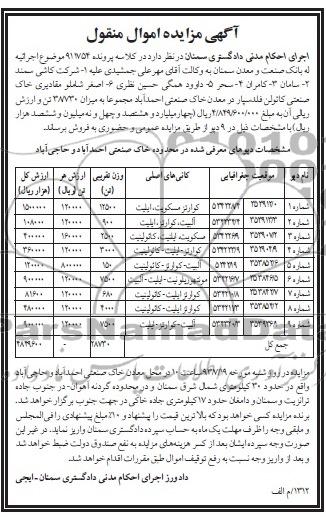 آگهی مزایده اموال منقول
اجرای احکام مدنی دادگستری سمنان در نظر دارد در کلاسه پرونده ۹۱۷۵۴ موضوع اجرائیه
له بانک صنعت و معدن سمنان به وکالت آقای مهرعلی جمشیدی علیه ۱- شرکت کاشی سمند
۲- سامان ۳- کامران ۴- سحر ۵- داوود همگی حسین نظری ۶- اصغر شاملو مقادیری خاک
صنعتی کائولن فلدسپار در معدن خاک صنعتی احمدآباد مجموعا به میزان ۳۸۷۳۰ تن و ارزش
ریالی آن به مبلغ ۴/۸۴۹/۶۰۰/۰۰۰ ریال (چهارمیلیارد و هشتصد و چهل و نه میلیون و ششصد هزار
ریال) با مشخصات ذیل در ۹ دپو از طریق مزایده عمومی و حضوری به فروش برساند.
مشخصات دپوهای معرفی شده در محدوده خاک صنعتی احمدآباد و حاجی آباد
نام دپو موقعیت جغرافیایی کانی‌های اصلی وزن تقریبی (تن) ارزش هر تن (ریال) ارزش کل (هزار ریال)
شماره ۱ کوارتز، مسکویت، ایلیت ۱۲۵۰۰ ۱۲۰۰۰۰ ۱۵۰۰۰۰۰
شماره ۲ آلبیت، کوارتز، ایلیت ۹۰۰ ۱۲۰۰۰۰ ۱۰۸۰۰۰
شماره ۳ مسکویت، ایلیت، کائولینیت ۲۵۰۰ ۱۶۰۰۰۰ ۴۰۰۰۰۰
شماره ۴ کوارتز-ایلیت-کائولینیت ۳۰۰۰ ۱۲۰۰۰۰ ۳۶۰۰۰۰
شماره ۵ آلبیت-کوارتز-کائولینیت ۱۵۰ ۸۰۰۰۰۰ ۱۲۰۰۰۰
شماره ۶ مونتموریلونیت-ایلیت-آلبیت ۷۵۰۰ ۱۲۰۰۰۰ ۹۰۰۰۰۰
شماره ۷ کوارتز-ایلیت-کائولینیت ۶۸۰ ۱۲۰۰۰۰ ۸۱۶۰۰
شماره ۸ کوارتز-ایلیت-کائولینیت ۴۰۰۰ ۱۲۰۰۰۰ ۴۸۰۰۰۰
شماره ۹ آلبیت-کوارتز-ایلیت ۷۵۰۰ ۱۲۰۰۰۰ ۹۰۰۰۰۰
جمع کل ۳۸۷۳۰ - ۴۸۴۹۶۰۰
مزایده در روز شنبه مورخه ۹۳/۷/۱۹ ساعت ۱۰ در محل معدن خاک صنعتی احمدآباد و حاجی آباد
واقع در حدود ۳۰ کیلومتری شمال شرق سمنان و در محدوده گردنه آهوان- در جنوب جاده
ترانزیت و سمنان و دامغان حدود ۱۷ کیلومتری جاده خاکی در جهت جنوب برگزار خواهد شد.
برنده مزایده کسی خواهد بود که بالاترین قیمت را پیشنهاد و ۱۰٪ مبلغ پیشنهادی را فی المجلس
و مابقی وجه را ظرف مهلت یک ماه به حساب سپرده دادگستری سمنان واریز نماید. در غیر این
صورت وجه سپرده ایشان بعد از کسر هزینه‌های مزایده به نفع صندوق دولت ضبط خواهد شد
و بعد از واریز وجه نسبت به رفع توقیف اموال طبق مقررات اقدام خواهد شد.
دادورز اجرای احکام مدنی دادگستری سمنان - ایجی
۱۳۱۲/م الف